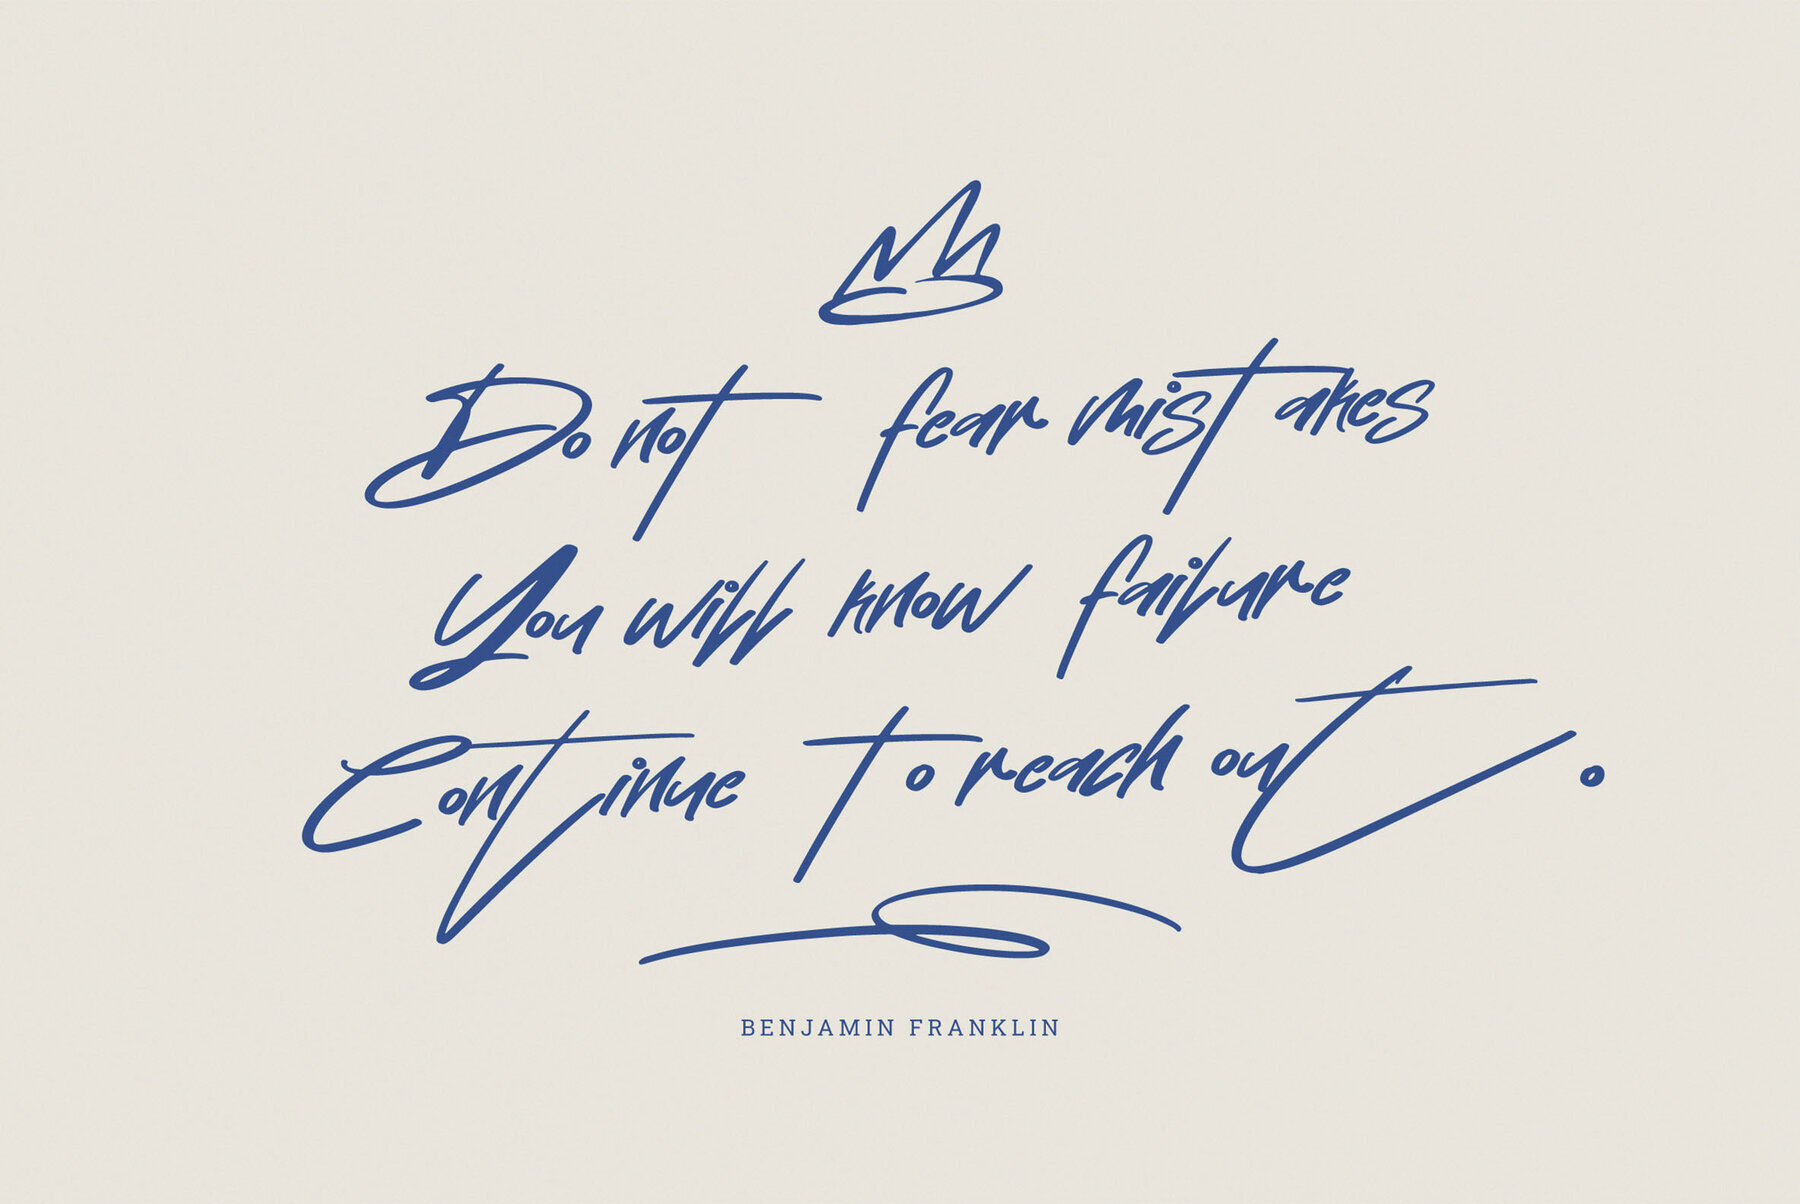 Do not fear mistakes
You will know failure
Continue to reach out.
BENJAMIN FRANKLIN